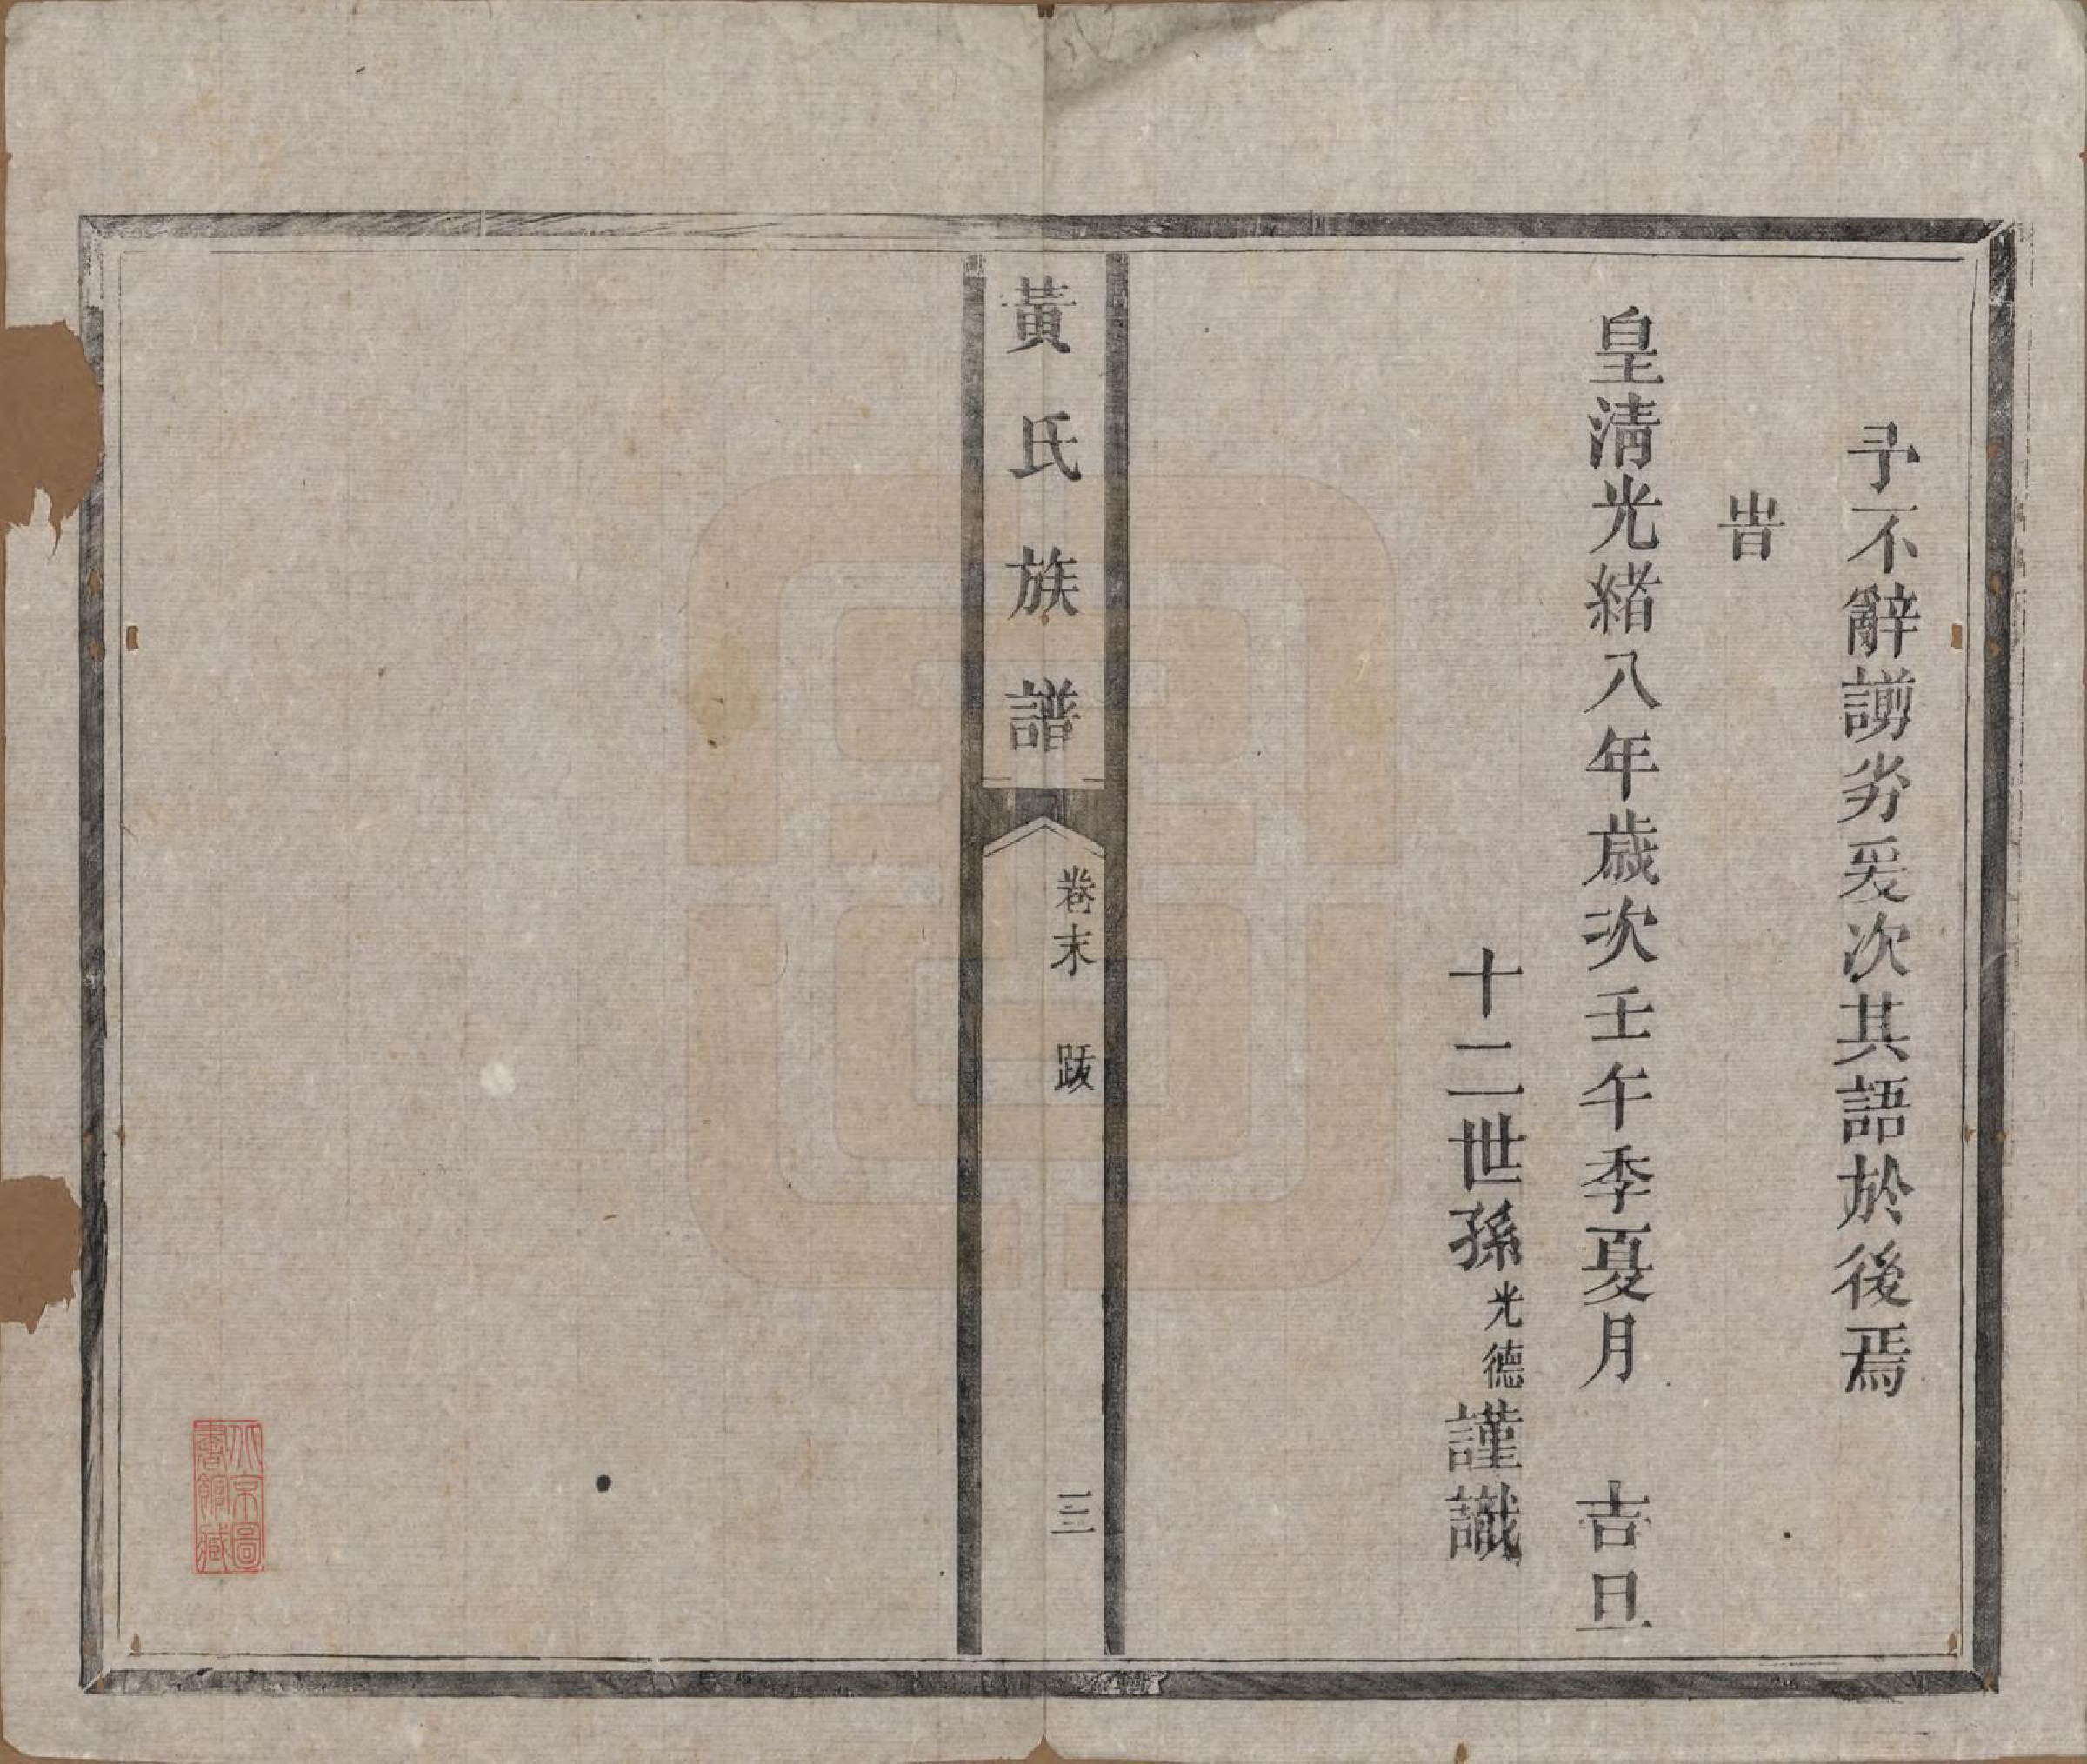 予不辭譾劣爰次其語於後焉
旹
皇清光緒八年歲次壬午季夏月　吉旦
十二世孫光德謹識
黃氏族譜
卷末　跋
三
北京圖書館藏